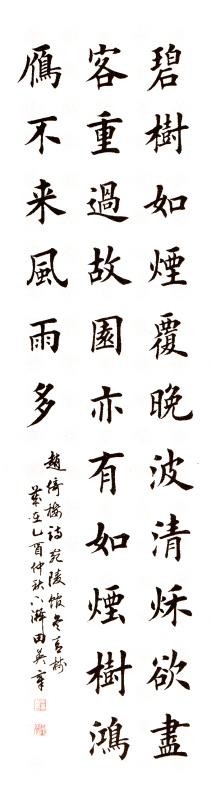 碧樹如煙覆晚波清秋欲盡
客重過故園亦有如煙樹鴻
鴈不来風雨多
趙倚樓詩宛陵館冬青樹
歲在乙酉仲秋下澣田英章